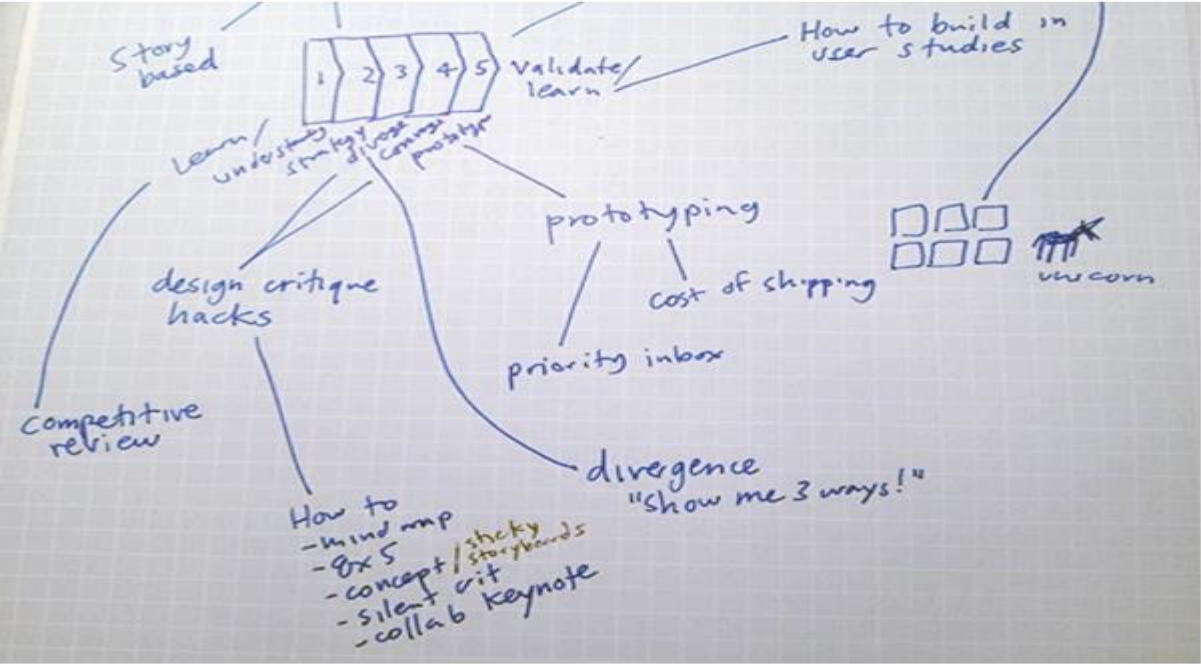 Story
based
1 2 3 4 5
validate/
learn
How to build in
user studies
Learn/
understand
strategy
diverge
converge
prototype
prototyping
cost of shipping
priority inbox
unicorn
design critique
hacks
competitive
review
divergence
"Show me 3 ways!"
How to
-mind map
-8x5
-concept/sticky
storyboards
-silent crit
-collab keynote